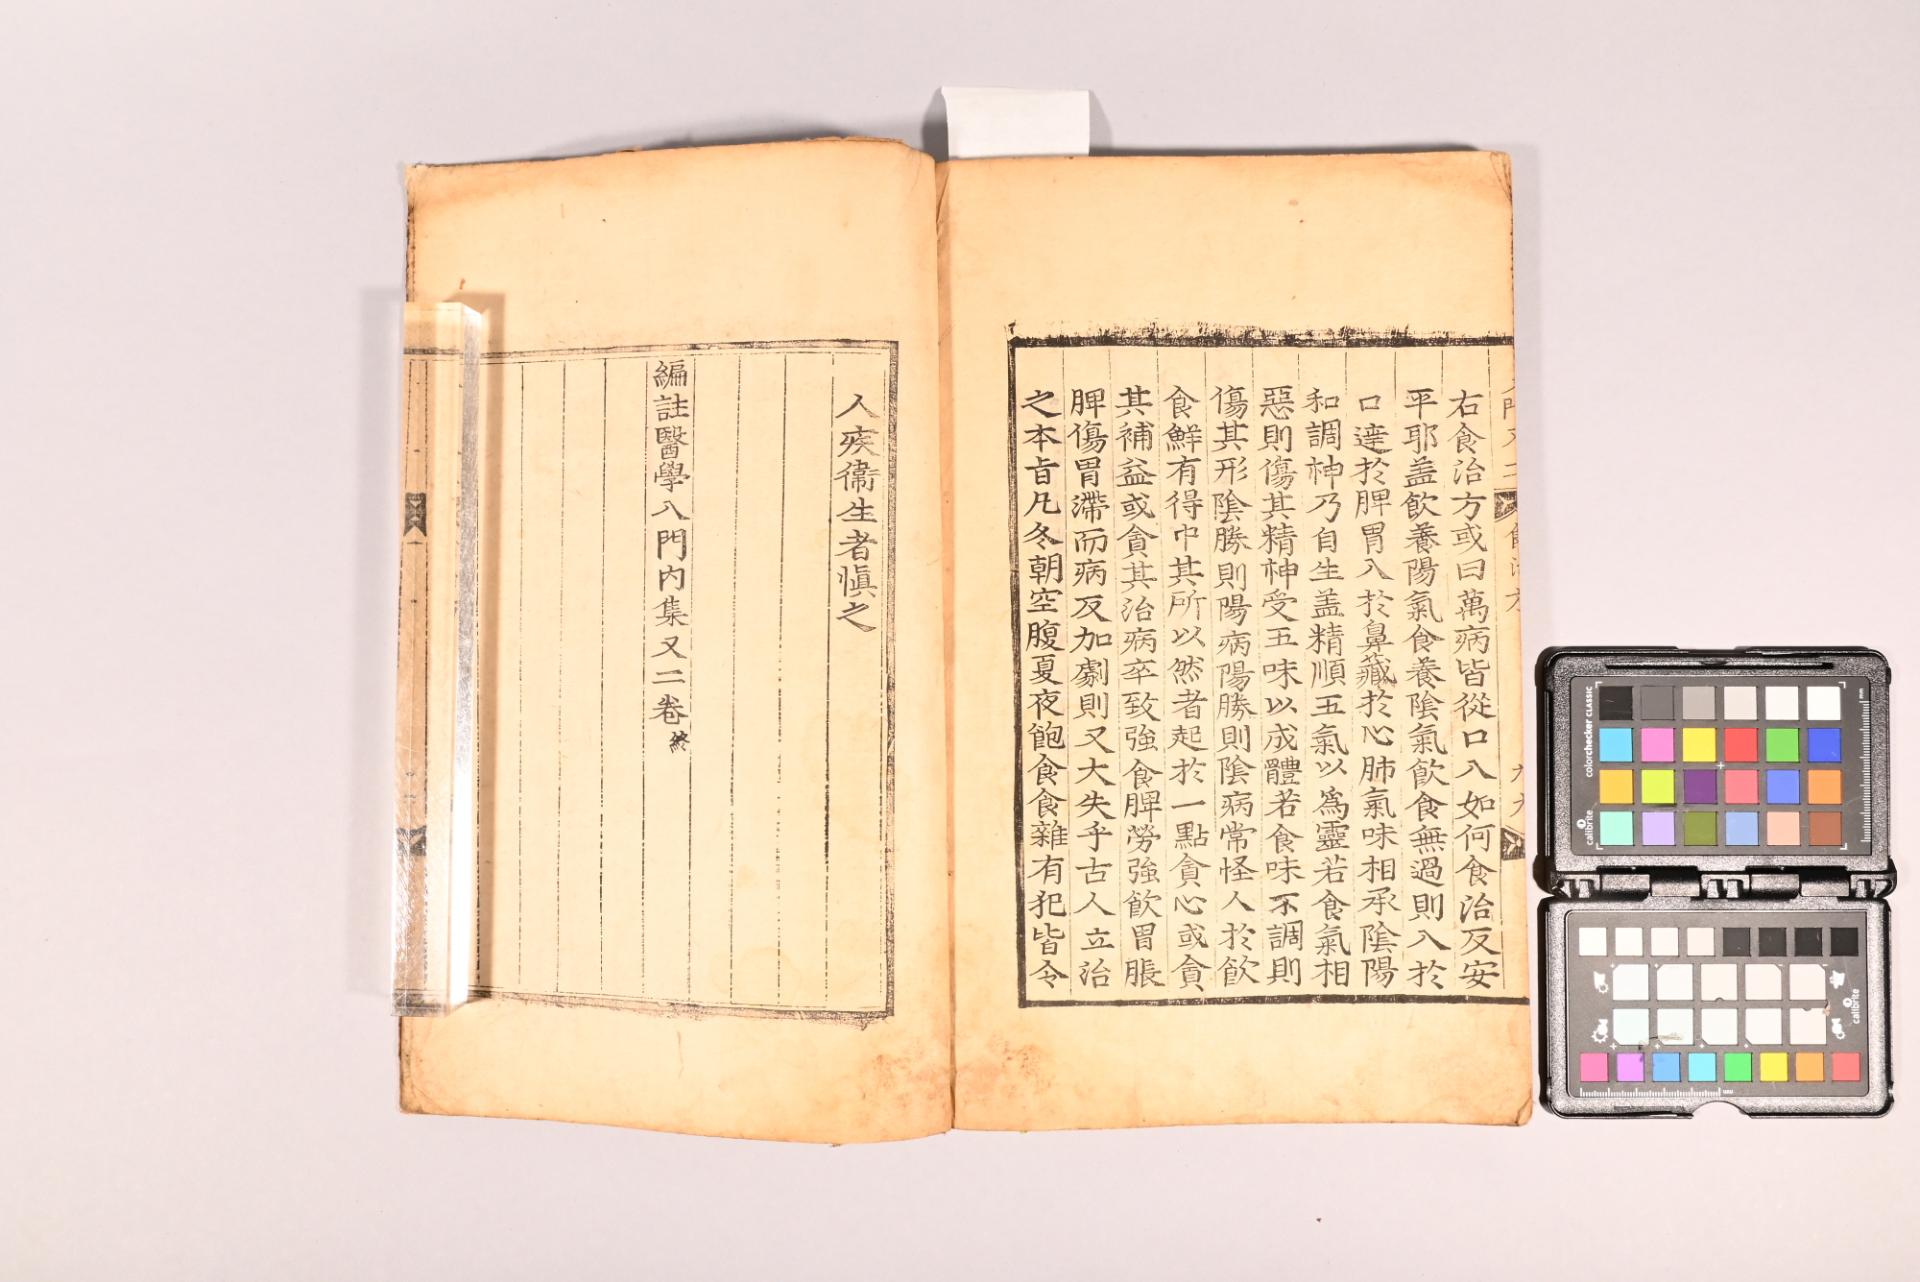 右食治方或曰萬病皆從口入如何食治反安
平耶盖飮養陽氣食養陰氣飮食無過則入於
口達於脾胃入於鼻藏於心肺氣味相承陰陽
和調神乃自生盖精順五氣以爲靈若食氣相
惡則傷其精神受五味以成體若食味不調則
傷其形陰勝則陽病陽勝則陰病常怪人於飮
食鮮有得中其所以然者起於一點貪心或貪
其補益或貪其治病卒致強食脾勞強飮胃脹
脾傷胃滯而病反加劇則又大失乎古人立治
之本旨凡冬朝空腹夏夜飽食食雜有犯皆令
人疾衞生者愼之
編註醫學入門內集又二卷終
calibrite
colorchecker CLASSIC
mm
calibrite